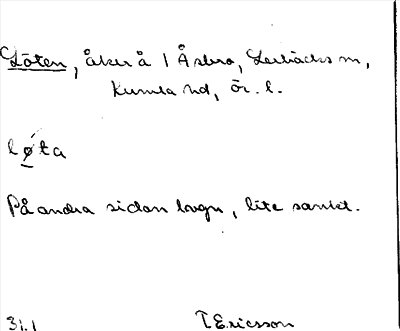 Löten, åker å 1 Åsbro, Lerbäcks sn,
Kumla hd, Ör. l.
løta
På andra sidan lagn, lite sankt.
31.1 T. Ericsson